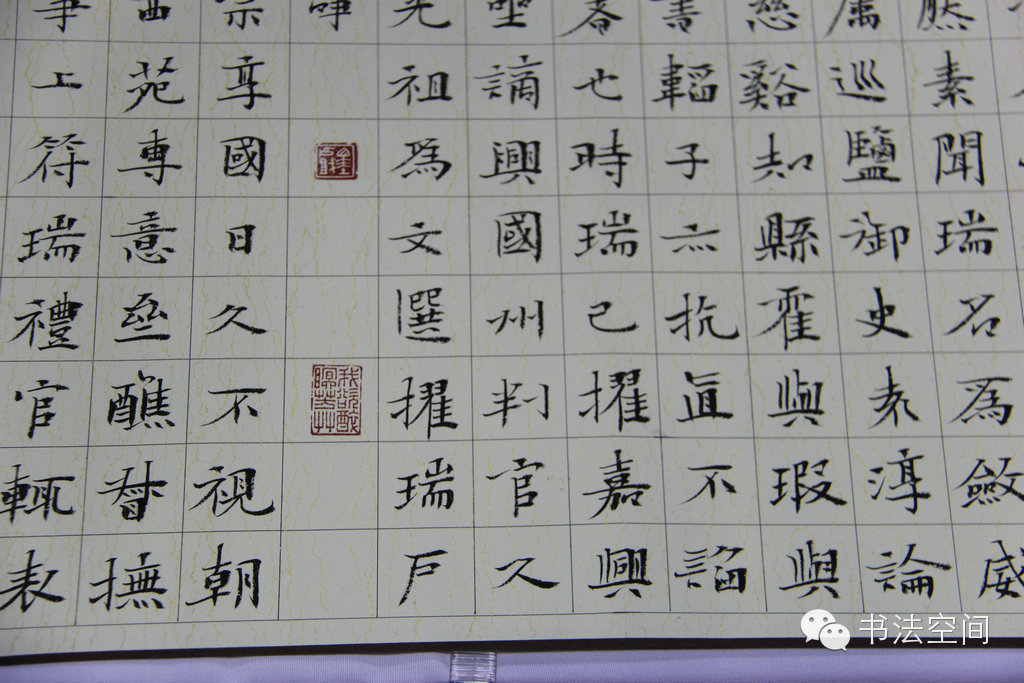 然素聞瑞名為斂威
屬巡鹽御史袁淳論
慈谿知縣霍與瑕與
書韜子亦抗直不諂
者也時瑞已擢嘉興
坐謫興國州判官久
光祖為文選擢瑞戶
我欲醉眠芳草
宗享國日久不視朝
西苑專意齋醮督撫
爭上符瑞禮官輒表
书法空间